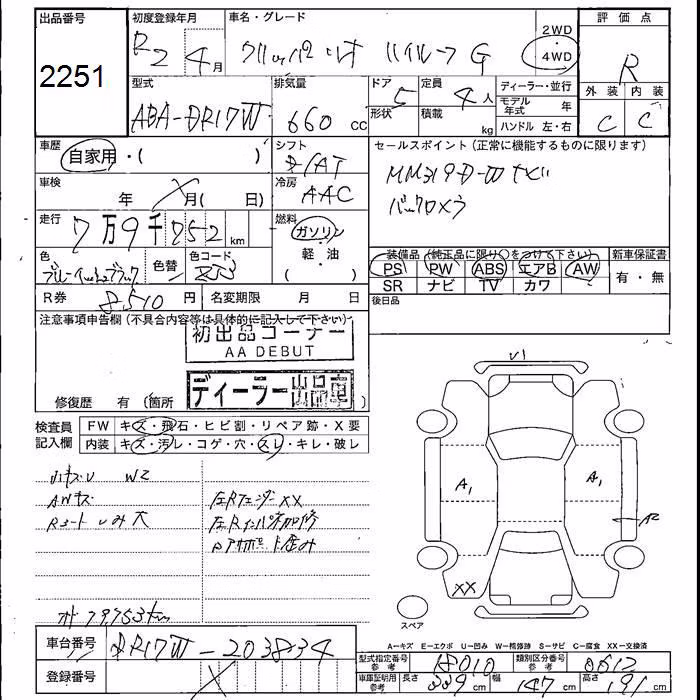 出品番号
2251
初度登録年月
R2 4月
車名・グレード
クリッパーリオ ハイルーフ G
2WD
4WD
評価点
R
外装 内装
C C
型式
ABA-DR17W
排気量
660 cc
ドア 5
形状
定員 4人
積載 kg
ディーラー・並行
モデル年式 年
ハンドル 左・右
車歴
自家用・( )
シフト
AT
車検
年 月( 日)
冷房
AAC
セールスポイント(正常に機能するものに限ります)
MM319D-W ナビ
バックカメラ
走行
7万9千752 km
燃料
ガソリン
軽・油
( )
色
ブルーイッシュブラック
色替
色コード
ZJ3
装備品(純正品に限り○をつけて下さい)
PS PW ABS エアB AW
SR ナビ TV カワ
新車保証書
有・無
R券 8510円
名変期限 月 日
後日品
注意事項申告欄(不具合内容等は具体的に記入して下さい)
初出品コーナー
AA DEBUT
ディーラー出品車
修復歴 有(箇所 )
検査員記入欄
FW キズ・飛石・ヒビ割・リペア跡・X要
内装 キズ・汚レ・コゲ・穴・スレ・キレ・破レ
小キズU W2
AWキズ
Rシート シミ大
左Rフェンダー XX
79753km
U1
A1
A1
A2
XX
スペア
A=キズ E=エクボ U=凹み W=補修跡 S=サビ C=腐食 XX=交換済
車台番号
DR17W-203834
登録番号
型式指定番号 参考 18010
類別区分番号 参考 0612
車庫証明用 参考 長さ 339cm 幅 147cm 高さ 191cm